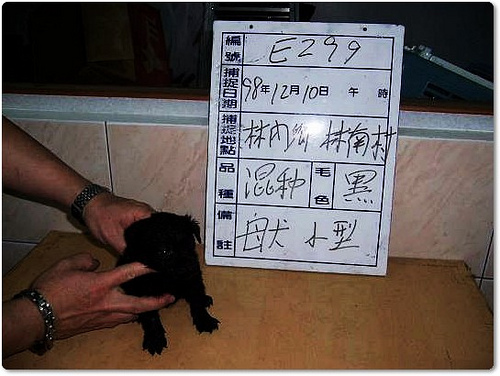 編號 E299
捕捉日期 98年12月10日 午 時
捕捉地點 林內鄉 林南村
品種 混种 毛色 黑
備註 母犬 小型